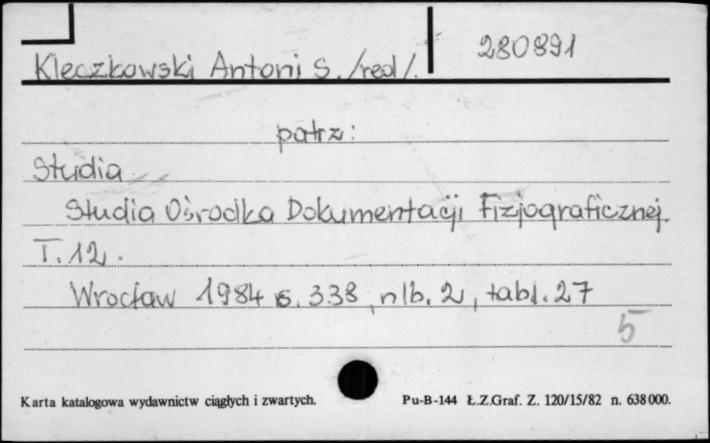 280891
Kleczkowski Antoni S. /red/.
patrz:
Studia
Studia Ośrodka Dokumentacji Fizjograficznej.
T. 12.
Wrocław 1984 s. 338, nlb. 2, tabl. 27
5
Karta katalogowa wydawnictw ciągłych i zwartych. Pu-B-144 Ł.Z.Graf. Z. 120/15/82 n. 638000.